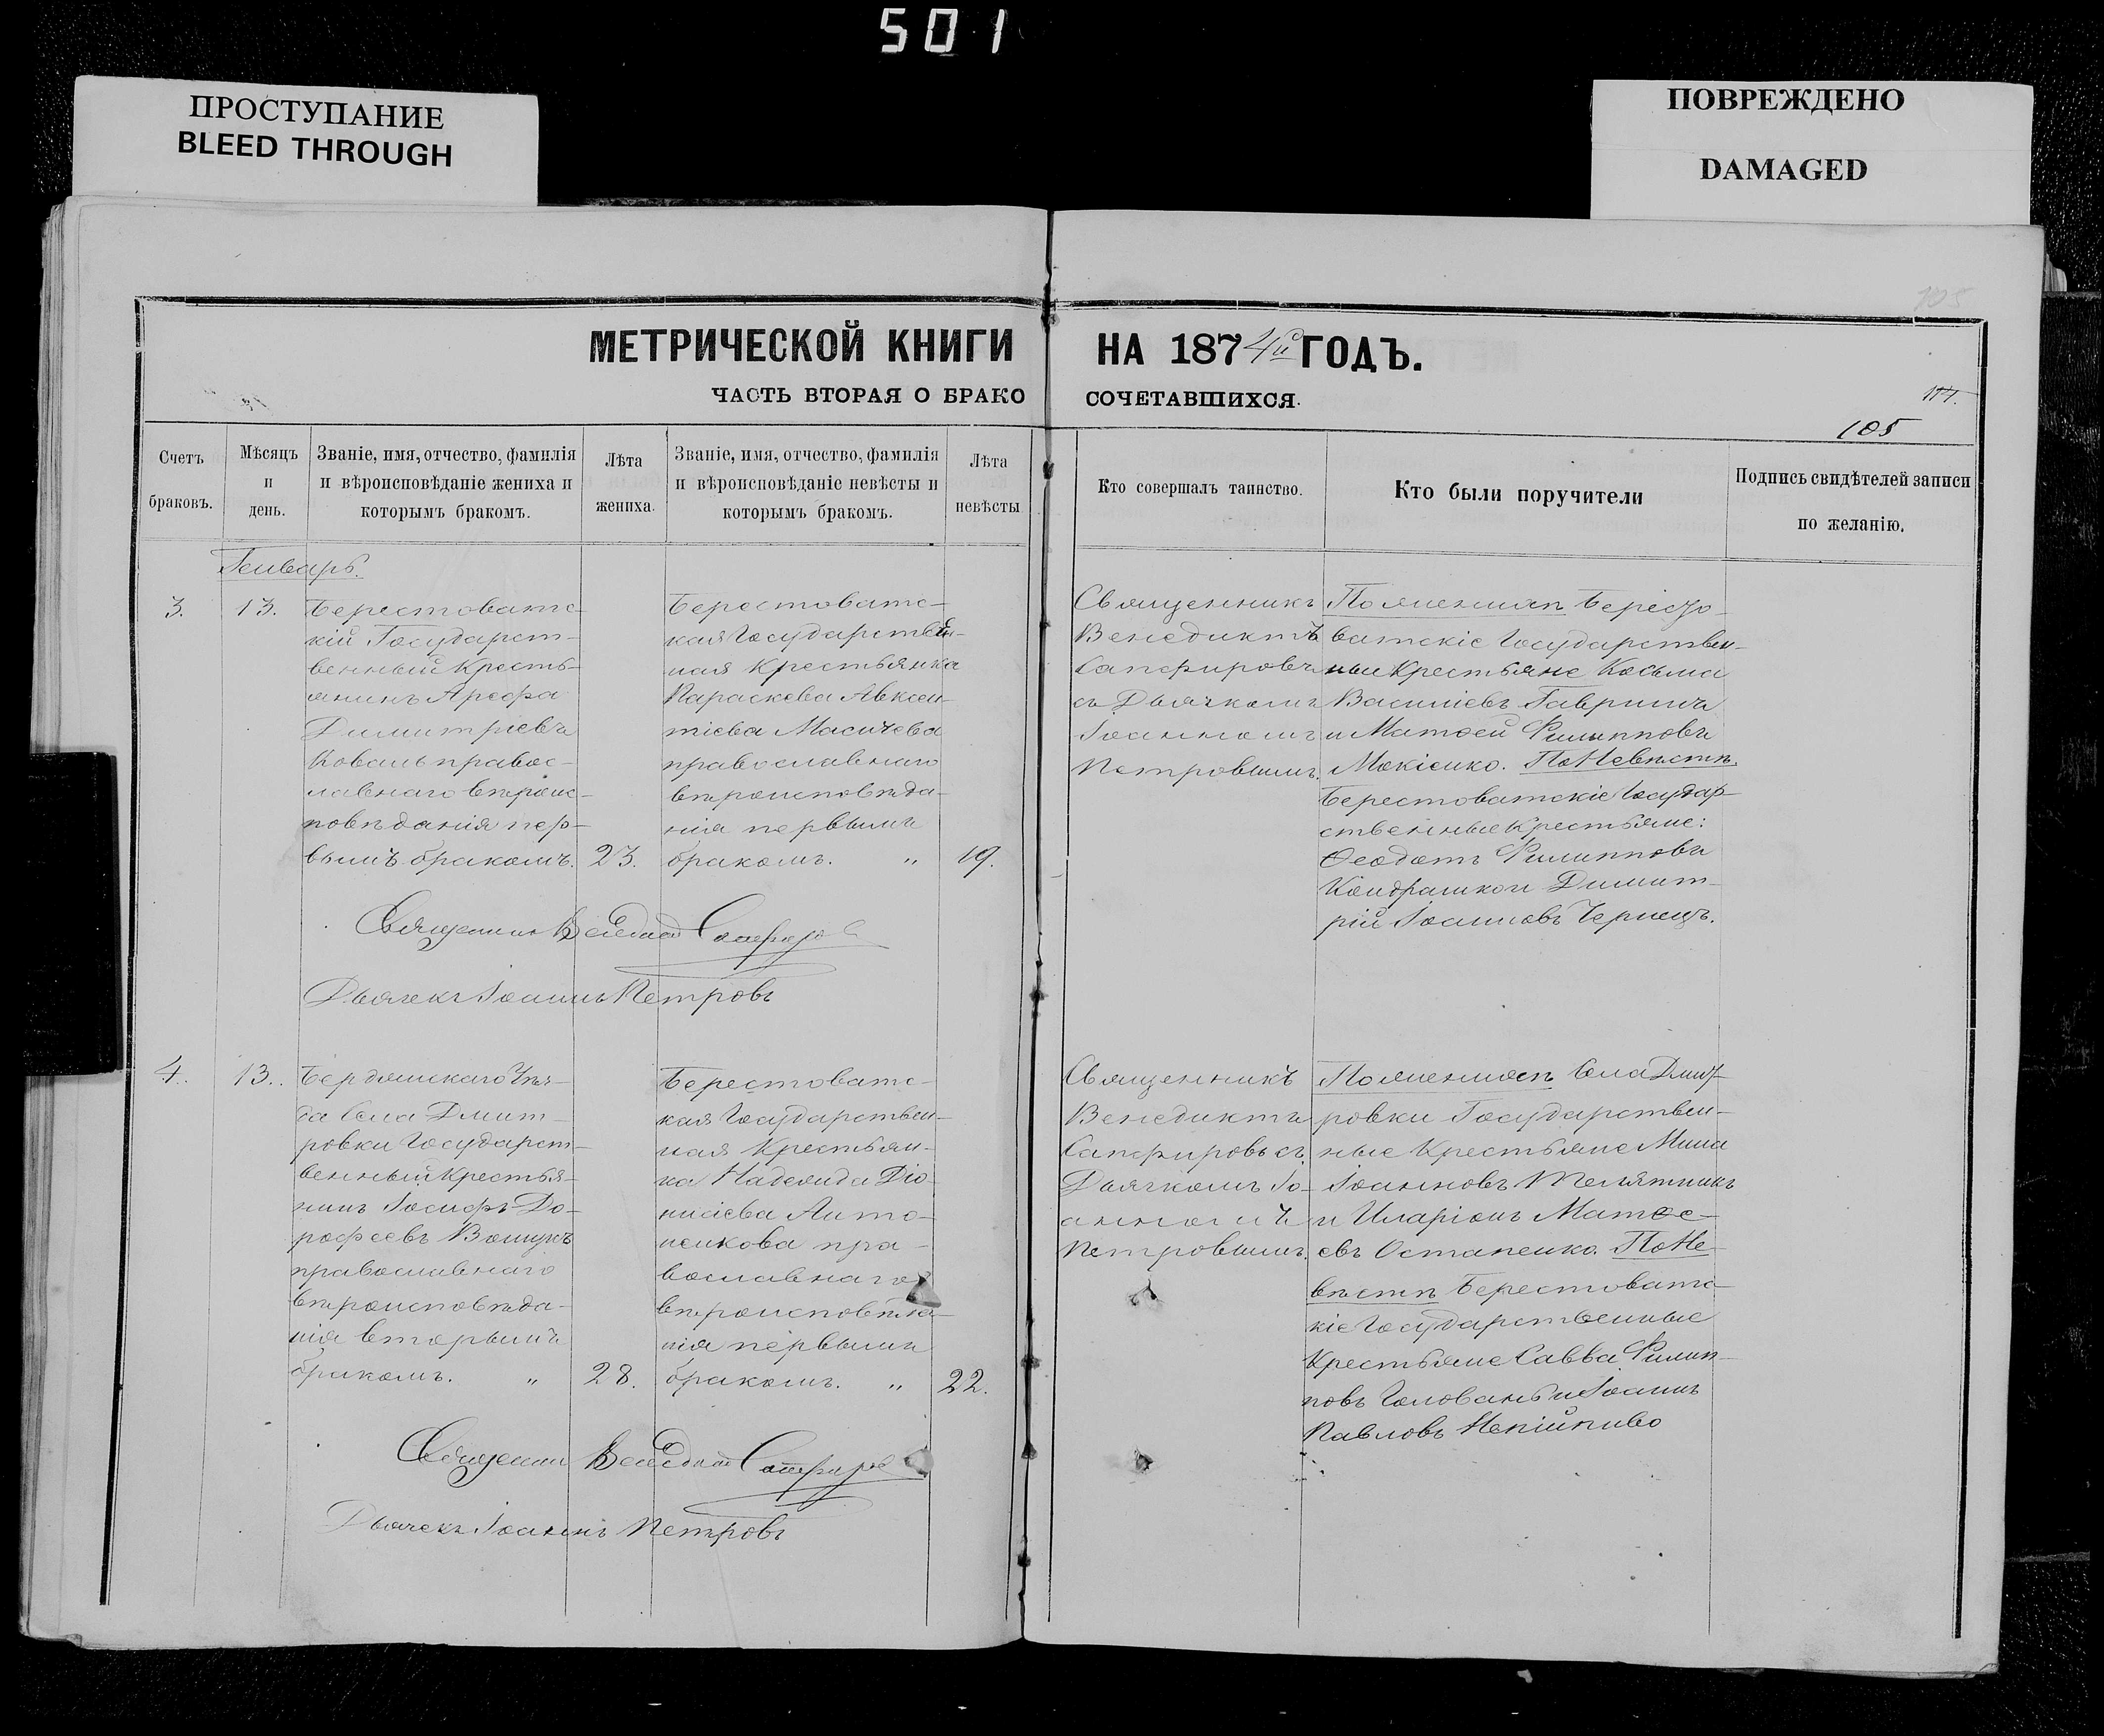 501
ПРОСТУПАНИЕ
BLEED THROUGH
ПОВРЕЖДЕНО
DAMAGED
105
МЕТРИЧЕСКОЙ КНИГИ
НА 1874й ГОДЪ.
ЧАСТЬ ВТОРАЯ О БРАКО
СОЧЕТАВШИХСЯ.
105
Счетъ
браковъ.
Мѣсяцъ
и
день.
Званіе, имя, отчество, фамилія
и вѣроисповѣданіе жениха и
которымъ бракомъ.
Лѣта
жениха.
Званіе, имя, отчество, фамилія
и вѣроисповѣданіе невѣсты и
которымъ бракомъ.
Лѣта
невѣсты
Кто совершалъ таинство.
Кто были поручители
Подпись свидѣтелей записи
по желанію.
Генварь.
3.
13.
Берестоватс-
кій Государст-
венный Кресть-
янинъ Арефа
Димитріевъ
Коваль правос-
лавнаго вѣроис-
повѣданія пер-
вымъ бракомъ.
23.
Берестоватс-
кая Государствен-
ная Крестьянка
Параскева Авксен-
тіева Масичева
православнаго
вѣроисповѣда-
нія первымъ
бракомъ. "
19.
Священникъ
Венедиктъ
Сапфировъ
съ Дьячкомъ
Іоанномъ
Петровымъ.
По женихѣ Бересто-
ватскіе Государствен-
ные Крестьяне Косьма
Василіевъ Гавришъ
и Матѳей Филипповъ
Мокіенко. По Невѣстѣ.
Берестоватскіе Государ-
ственные Крестьяне:
Ѳеодотъ Филипповъ
Кондрашко и Димит-
рій Іоанновъ Чернецъ.
Священникъ Венедиктъ Сапфировъ
Дьячекъ Іоаннъ Петровъ
4.
13.
Бердянскаго Уѣз-
да Села Дмит-
ровки Государст-
венный Крестья-
нинъ Іосифъ До-
рофеевъ
православнаго
вѣроисповѣда-
нія вторымъ
бракомъ. "
28.
Берестоватс-
кая Государствен-
ная Крестьян-
ка Надежда Діо-
нисіева Анто-
ненкова пра-
вославнаго
вѣроисповѣда-
нія первымъ
бракомъ. "
22.
Священникъ
Венедиктъ
Сапфировъ съ
Дьячкомъ Іо-
анномъ
Петровымъ.
По женихѣ Села Дмит-
ровки Государствен-
ные Крестьяне Мина
Іоанновъ Телятникъ
и Иларіонъ Матѳе-
евъ Остапенко. По Не-
вѣстѣ Берестоватс-
кіе Государственные
Крестьяне Савва Филип-
повъ Головань и Іоаннъ
Павловъ Непійпиво
Священникъ Венедиктъ Сапфировъ
Дьячекъ Іоаннъ Петровъ